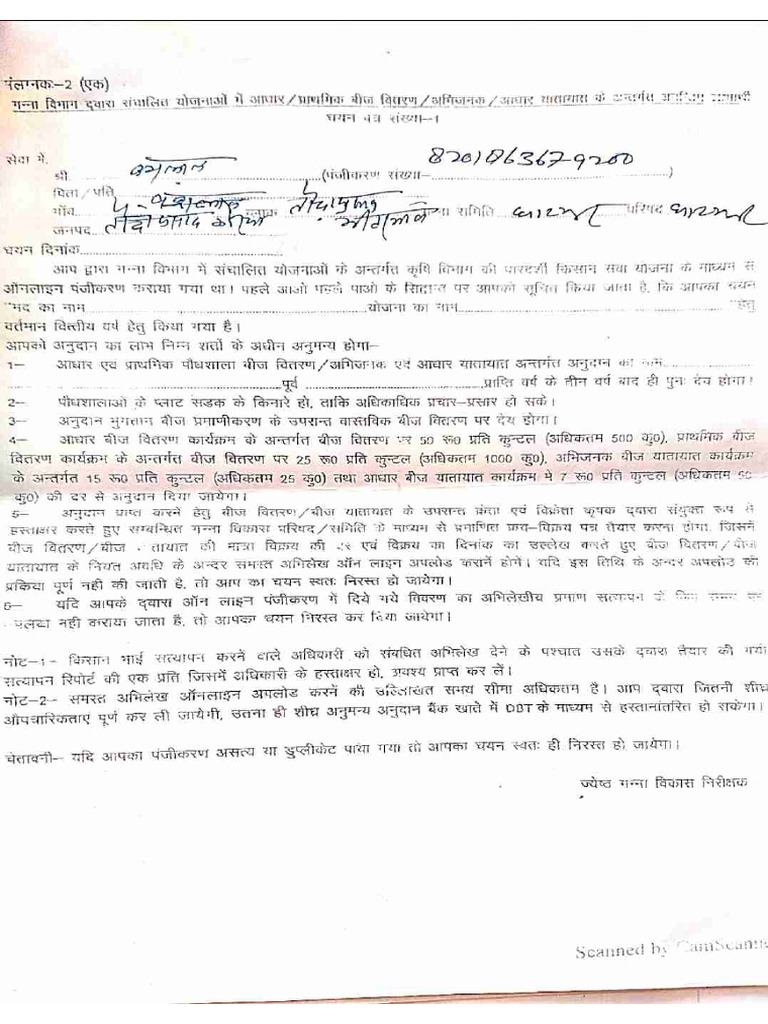 संलग्नक:-2 (एक)
गन्ना विभाग द्वारा संचालित योजनाओं में आधार/प्राथमिक बीज वितरण/अभिजनक/आधार यातायात के अन्तर्गत
चयन पत्र संख्या-1
सेवा में,
श्री (पंजीकरण संख्या- )
पिता/पति
गाँव समिति घाटमपुर परिषद घाटमपुर
जनपद
चयन दिनांक
आप द्वारा गन्ना विभाग में संचालित योजनाओं के अन्तर्गत कृषि विभाग की पारदर्शी किसान सवा योजना के माध्यम से
ऑनलाइन पंजीकरण कराया गया था। पहले आओ पहले पाओ के सिद्वान्त पर आपको सूचित किया जाता है, कि आपका चयन
मद का नाम योजना का नाम हेतु
वर्तमान वित्तीय वर्ष हेतु किया गया है।
आपको अनुदान का लाभ निम्न शर्तो के अधीन अनुमन्य होगा-
1- आधार एवं प्राथमिक पौधशाला बीज वितरण/अभिजनक एवं आधार यातायात अन्तर्गत अनुदान का नाम
पूर्व प्राप्ति वर्ष के तीन वर्ष बाद ही पुनः देय होगा।
2- पौधशालाओं के प्लाट सडक के किनारे हो, ताकि अधिकाधिक प्रचार-प्रसार हो सके।
3- अनुदान भुगतान बीज प्रमाणीकरण के उपरान्त वास्तविक बीज वितरण पर देय होगा।
4- आधार बीज वितरण कार्यक्रम के अन्तर्गत बीज वितरण पर 50 रू0 प्रति कुन्टल (अधिकतम 500 कु0), प्राथमिक बीज
वितरण कार्यक्रम के अन्तर्गत बीज वितरण पर 25 रू0 प्रति कुन्टल (अधिकतम 1000 कु0), अभिजनक बीज यातायात कार्यक्रम
के अन्तर्गत 15 रू0 प्रति कुन्टल (अधिकतम 25 कु0) तथा आधार बीज यातायात कार्यक्रम मे 7 रू0 प्रति कुन्टल (अधिकतम 50
कु0) की दर से अनुदान दिया जायेगा।
5- अनुदान प्राप्त करने हेतु बीज वितरण/बीज यातायात के उपरान्त क्रेता एवं विक्रेता कृषक द्वारा संयुक्त रूप से
हस्ताक्षर करते हुए सम्बन्धित गन्ना विकास परिषद/समिति के माध्यम से प्रमाणित क्रय-विक्रय पत्र तैयार करना होगा, जिसमें
बीज वितरण/बीज तायात की मात्रा विक्रय की दर एवं विक्रय का दिनांक का उल्लेख करते हुए बीज वितरण/बीज
यातायात के नियत अवधि के अन्दर समस्त अभिलेख ऑन लाइन अपलोड करानें होगें। यदि इस तिथि के अन्दर अपलोड की
प्रकिया पूर्ण नही की जाती है, तो आप का चयन स्वतः निरस्त हो जायेगा।
6- यदि आपके द्वारा ऑन लाइन पंजीकरण में दिये गये विवरण का अभिलेखीय प्रमाण सत्यापन
नही कराया जाता है, तो आपका चयन निरस्त कर दिया जायेगा।
नोट-1- किसान भाई सत्यापन करनें वाले अधिकारी को संबधित अभिलेख देने के पश्चात उसके द्वारा तैयार की गयी
सत्यापन रिपोर्ट की एक प्रति जिसमें अधिकारी के हस्ताक्षर हो, अवश्य प्राप्त कर लें।
नोट-2- समस्त अभिलेख ऑनलाइन अपलोड करनें की उल्लिखित समय सीमा अधिकतम है। आप द्वारा जितनी शीघ्र
औपचारिकताएं पूर्ण कर ली जायेगी, उतना ही शीघ्र अनुमन्य अनुदान बैंक खाते में DBT के माध्यम से हस्तानांतरित हो सकेगा।
चेतावनी- यदि आपका पंजीकरण असत्य या डुप्लीकेट पाया गया तो आपका चयन स्वतः ही निरस्त हो जायेगा।
ज्येष्ठ गन्ना विकास निरीक्षक
Scanned by CamScanne